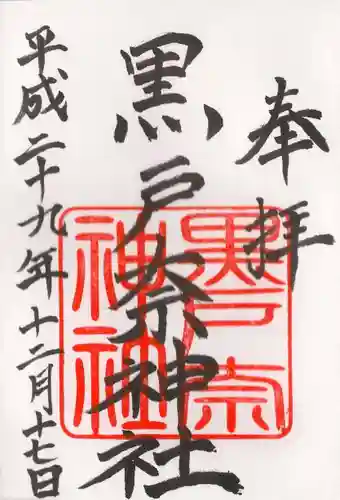 奉拝
黒戸奈神社
黒戸奈神社
平成二十九年十二月十七日